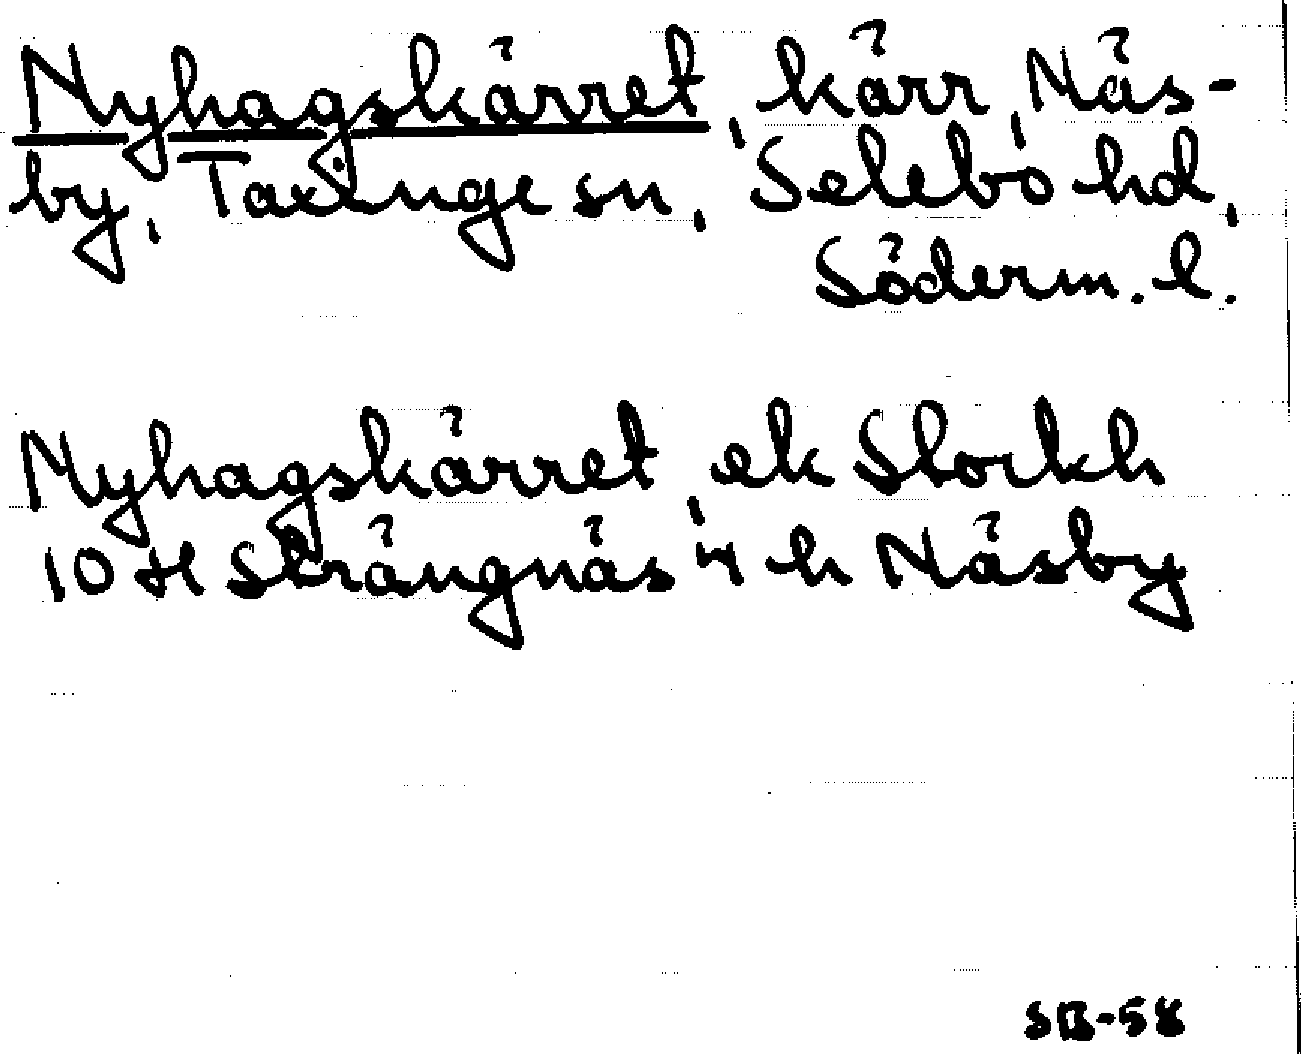 Nyhagskärret, kärr, Näs-
by, Taxinge sn, Selebo hd,
Söderm. l.
Nyhagskärret, ek Storkh
10 H Strängnäs 4 h Näsby
SB-58